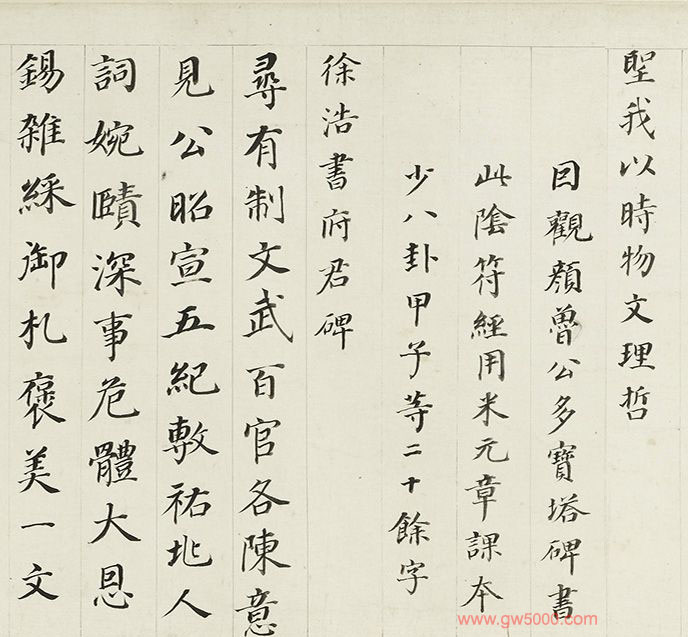 聖我以時物文理哲
因觀顏魯公多寶塔碑書
此陰符經用米元章課本
少八卦甲子等二十餘字
徐浩書府君碑
尋有制文武百官各陳意
見公昭宣五紀敷祐兆人
詞婉賾深事危體大恩
錫雜綵御札褒美一文
www.gw5000.com